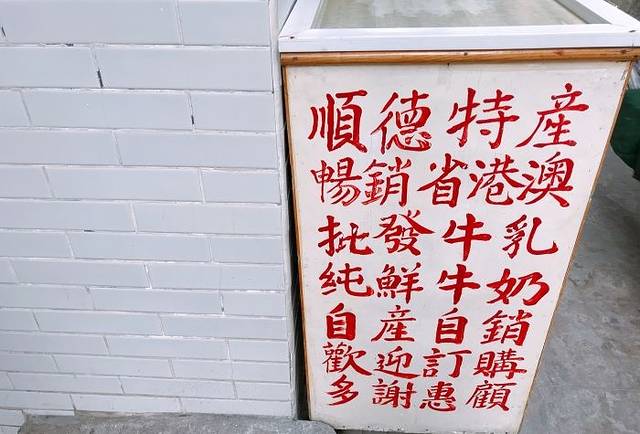 順德特産
暢銷省港澳
批發牛乳
純鮮牛奶
自產自銷
歡迎訂購
多謝惠顧